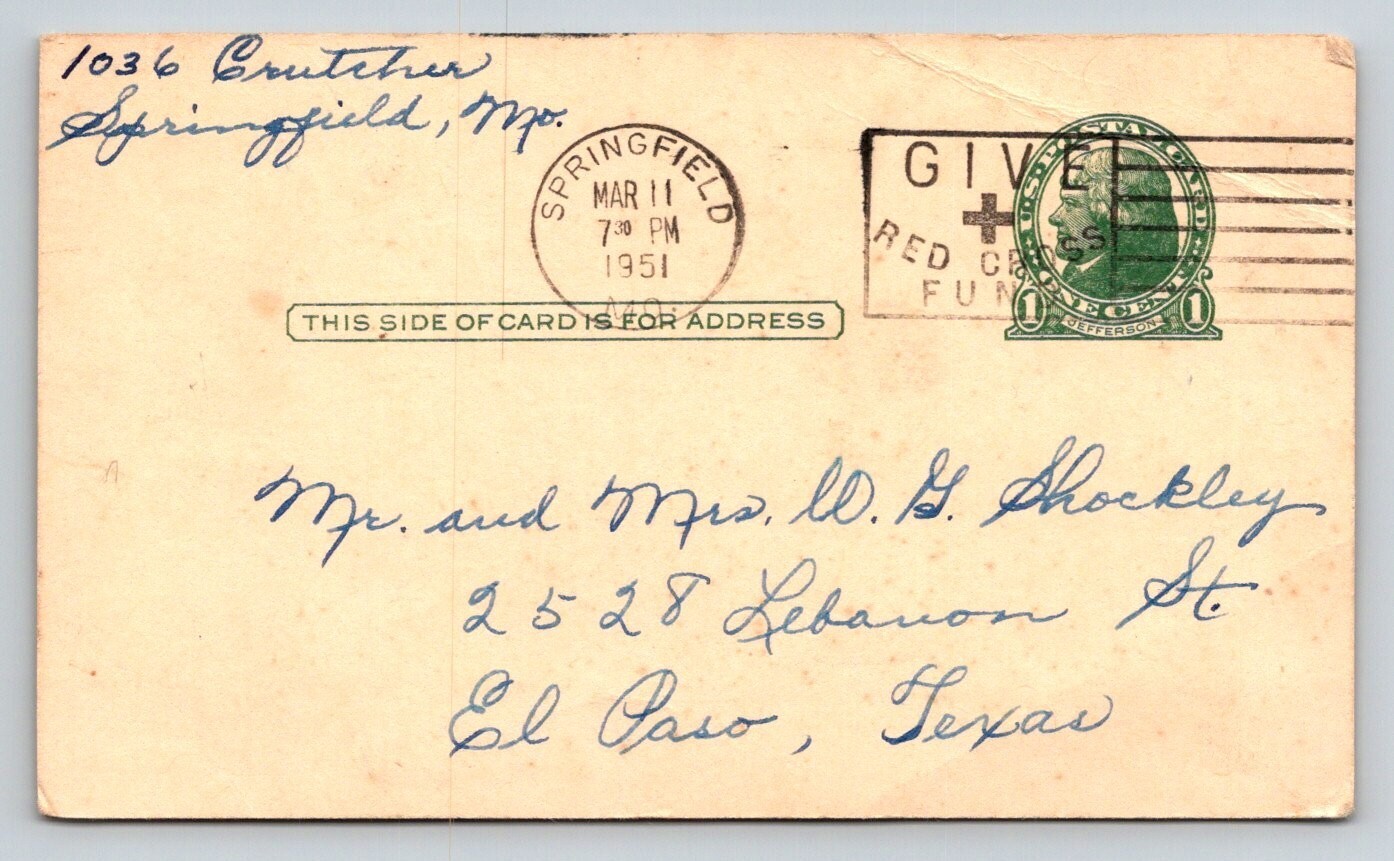 1036 Crutcher
Springfield, Mo.
SPRINGFIELD
MAR 11
7 30 PM
1951
MO.
GIVE
RED CROSS
FUND
U.S. POSTAL CARD
ONE CENT
1 JEFFERSON 1
THIS SIDE OF CARD IS FOR ADDRESS
Mr. and Mrs. W. G. Shockley
2528 Lebanon St.
El Paso, Texas